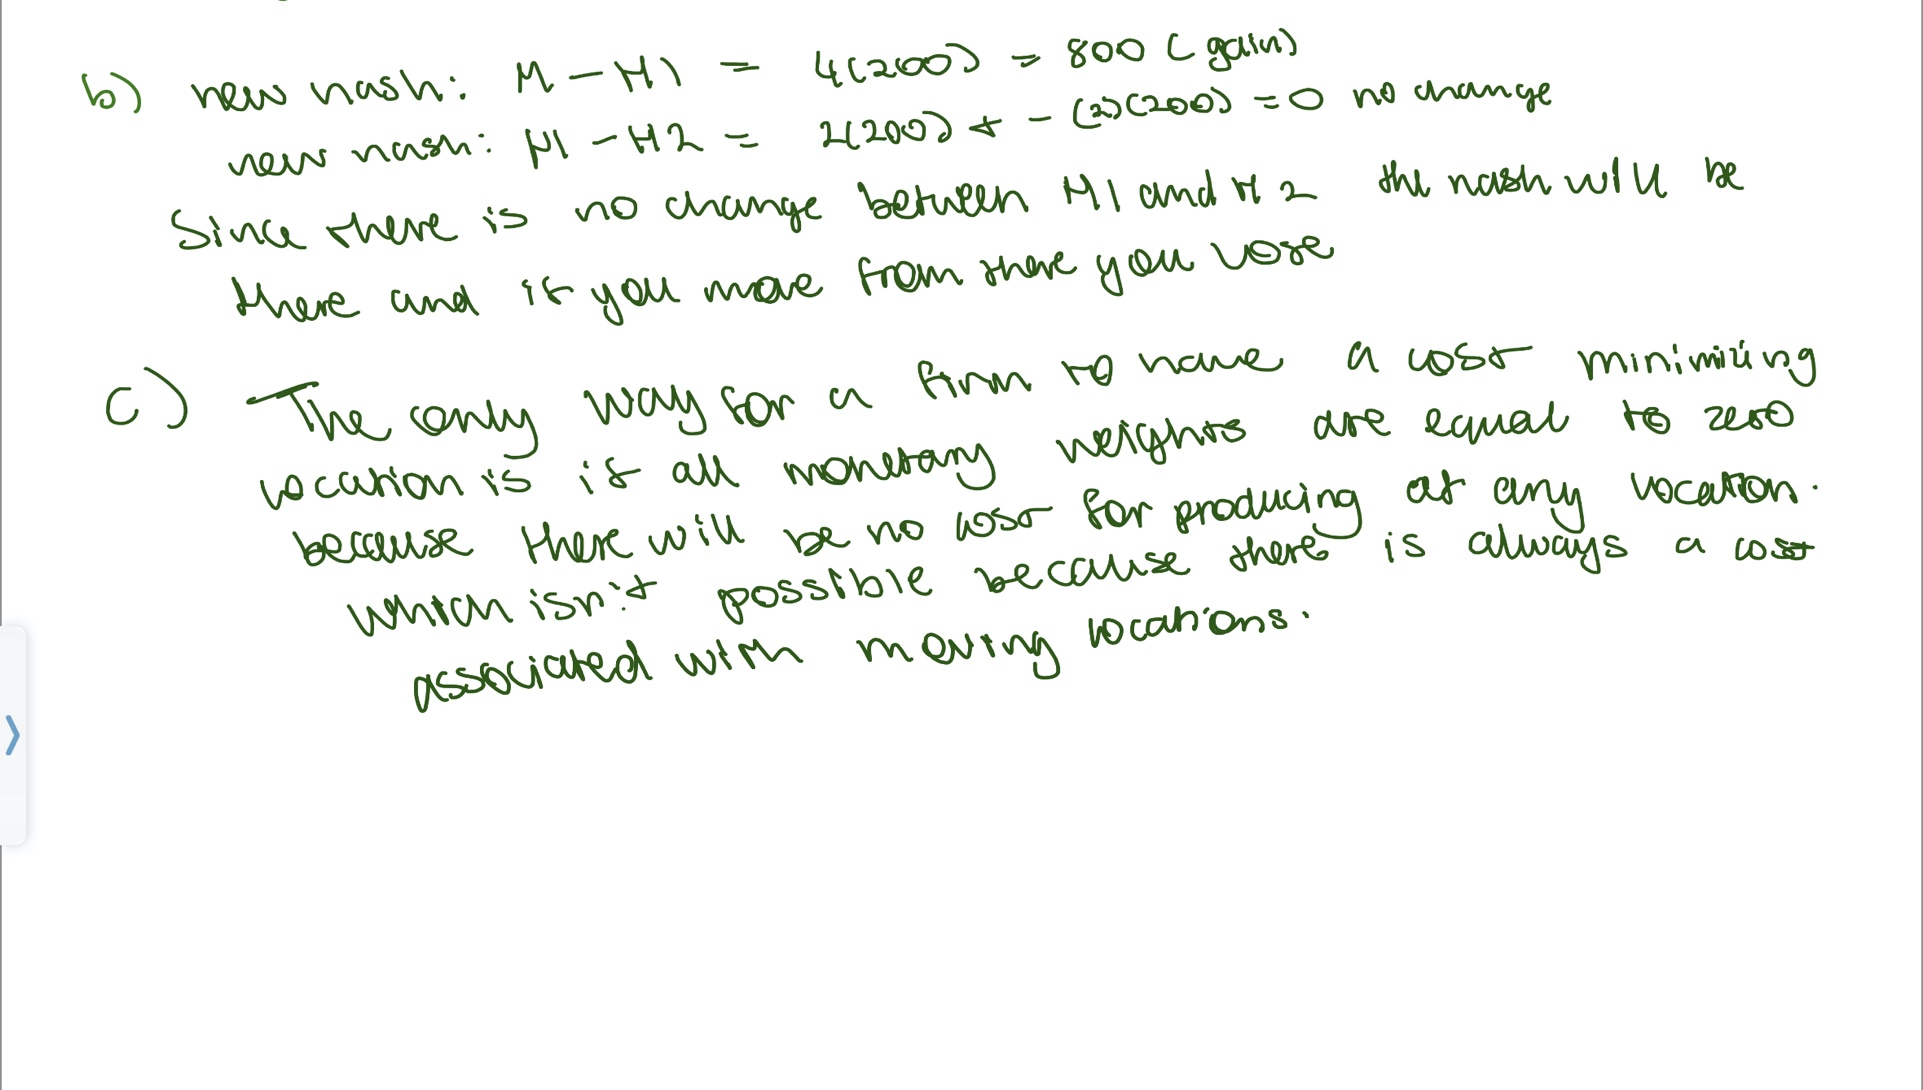 b) new nash: M - H1 = 4(200) = 800 (gain)
new nash: H1 - H2 = 2(200) + - (2)(200) = 0 no change
Since there is no change between H1 and H2 the nash will be
there and if you move from there you lose
c) The only way for a firm to have a cost minimizing
location is if all monetary weights are equal to zero
because there will be no cost for producing at any location.
which isn't possible because there is always a cost
associated with moving locations.